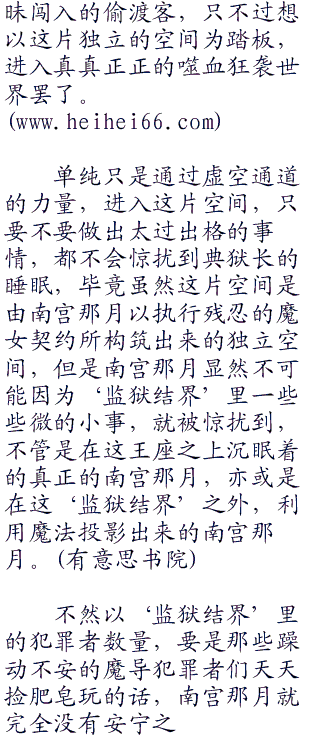 昧闯入的偷渡客，只不过想
以这片独立的空间为踏板，
进入真真正正的噬血狂袭世
界罢了。
(www.heihei66.com)
单纯只是通过虚空通道
的力量，进入这片空间，只
要不要做出太过出格的事
情，都不会惊扰到典狱长的
睡眠，毕竟虽然这片空间是
由南宫那月以执行残忍的魔
女契约所构筑出来的独立空
间，但是南宫那月显然不可
能因为‘监狱结界’里一些
些微的小事，就被惊扰到，
不管是在这王座之上沉眠着
的真正的南宫那月，亦或是
在这‘监狱结界’之外，利
用魔法投影出来的南宫那
月。(有意思书院)
不然以‘监狱结界’里
的犯罪者数量，要是那些躁
动不安的魔导犯罪者们天天
捡肥皂玩的话，南宫那月就
完全没有安宁之